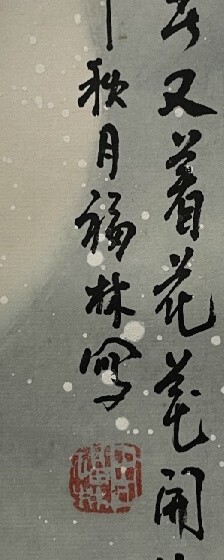 又着花花開
秋月福林寫